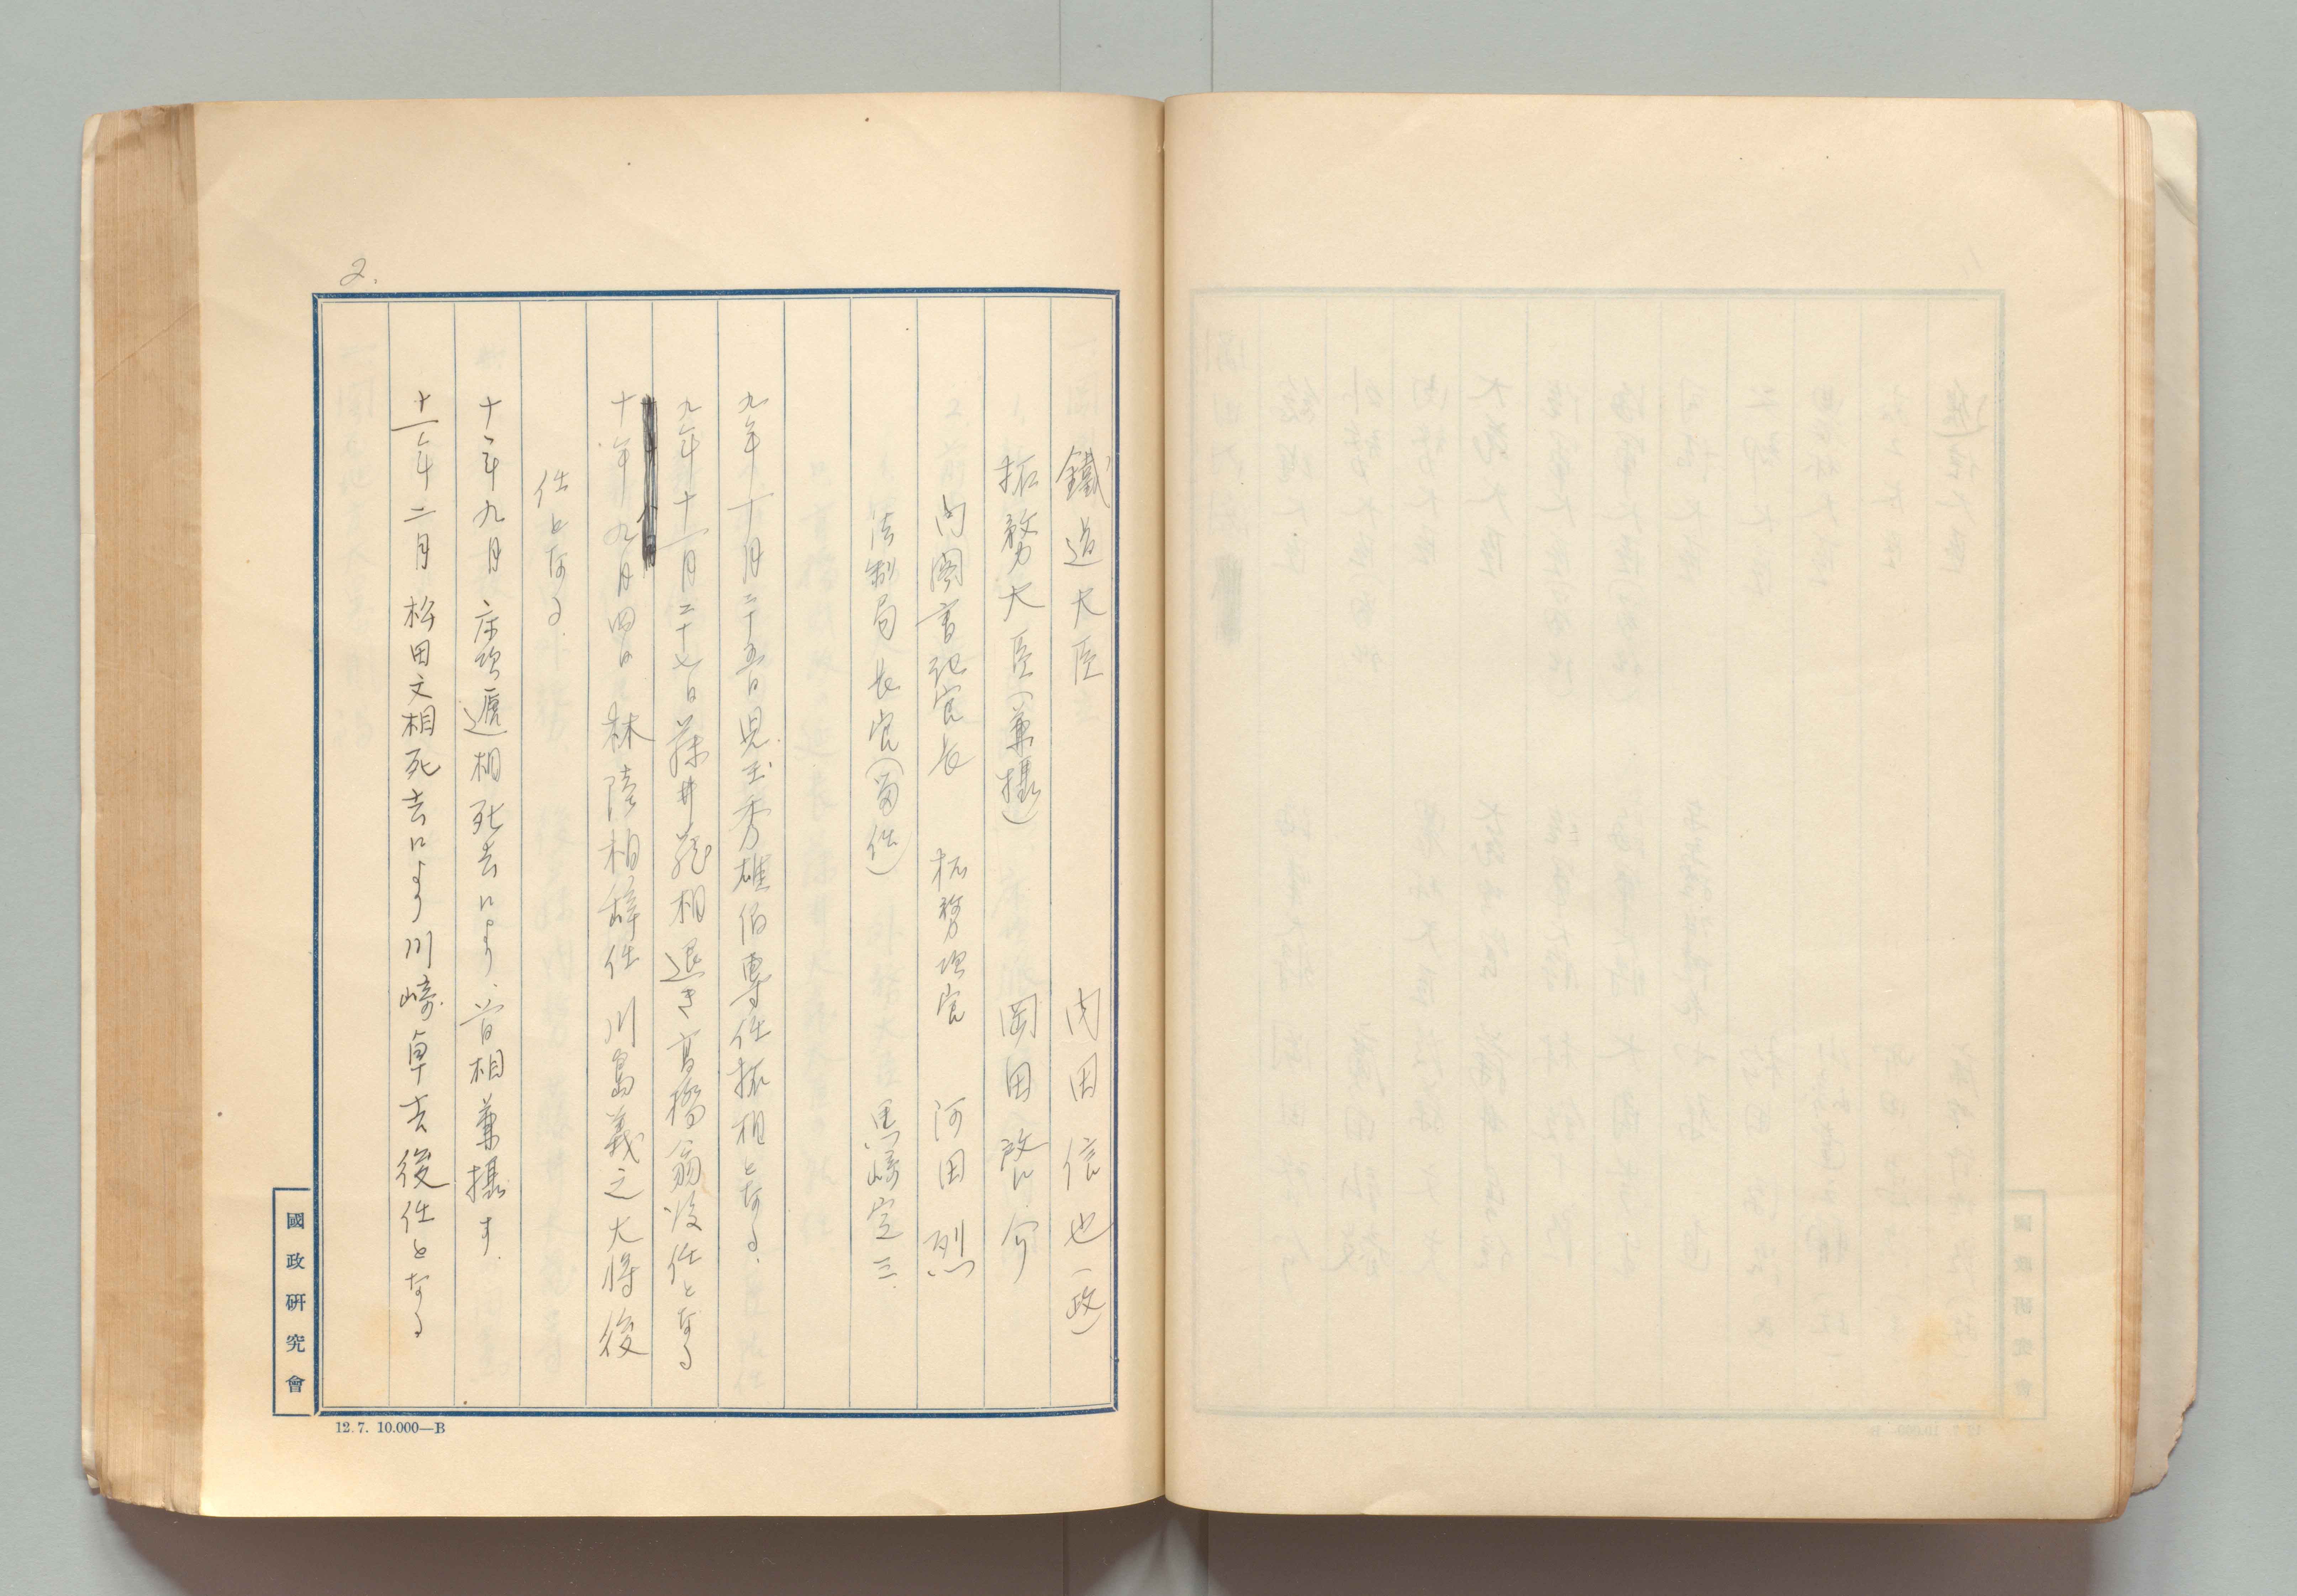 2.
鐵道大臣 内田信也(政)
拓務大臣(兼攝) 岡田啓介
内閣書記官長 拓務次官 河田烈
法制局長官(留任) 黒崎定三.
九年十月二十五日児玉秀雄伯専任拓相となる.
九年十一月二十七日藤井蔵相退き高橋翁後任となる
十年九月四日林陸相辞任 川島義之大将後
任となる.
十年九月 床次逓相死去により、首相兼攝す.
十一年二月 松田文相死去により川崎卓吉後任となる
國政研究會
12.7. 10.000—B